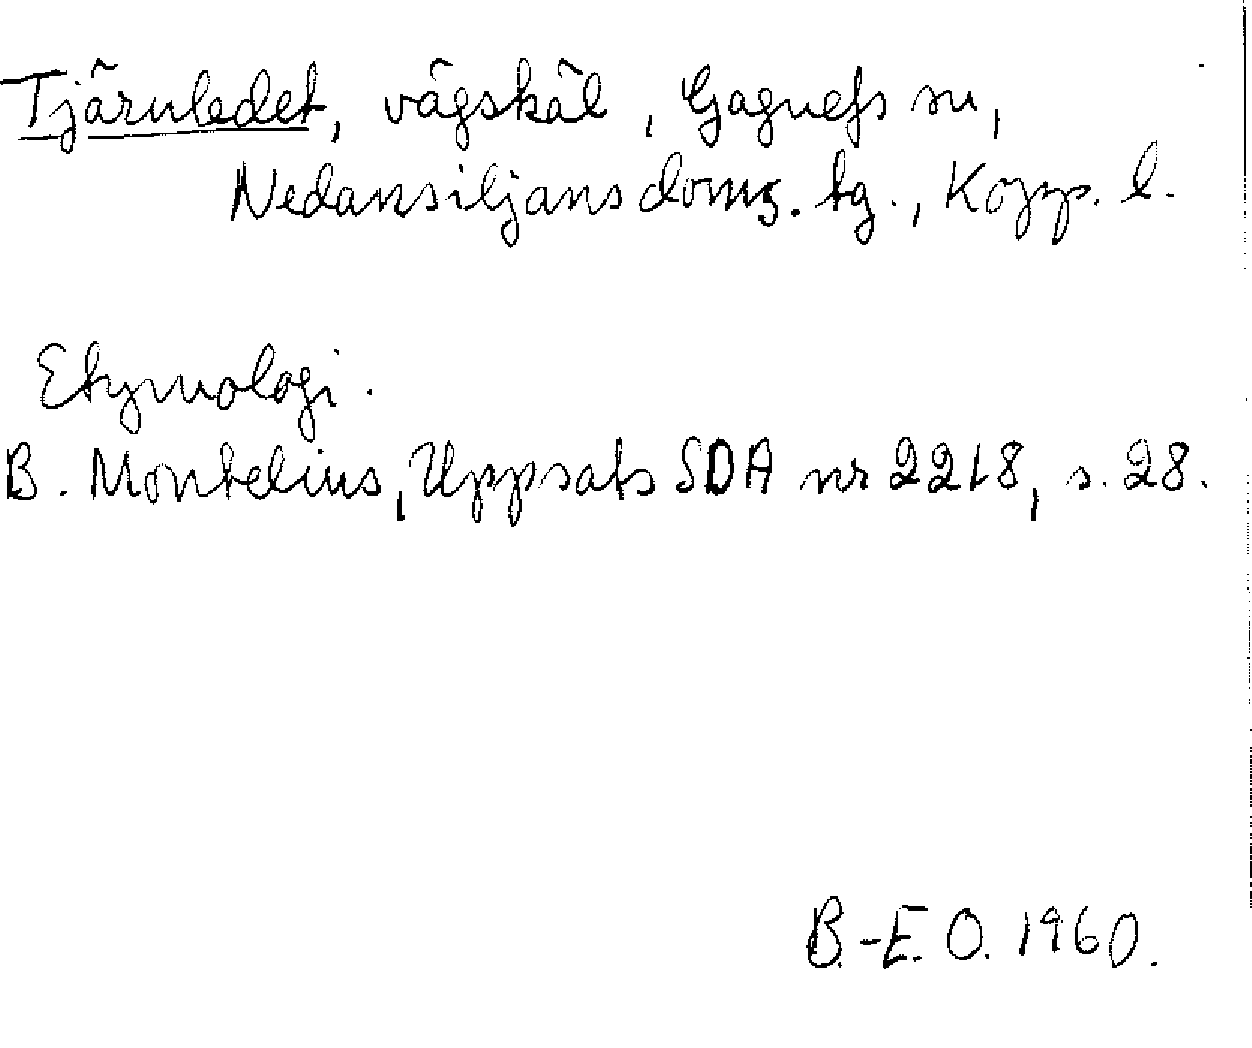 Tjärnledet, vägskäl, Gagnefs sn,
Nedansiljans doms. tg., Kopp. l.
Etymologi.
B. Montelius, Uppsats SDA nr 2218, s. 28.
B.-E. O. 1960.